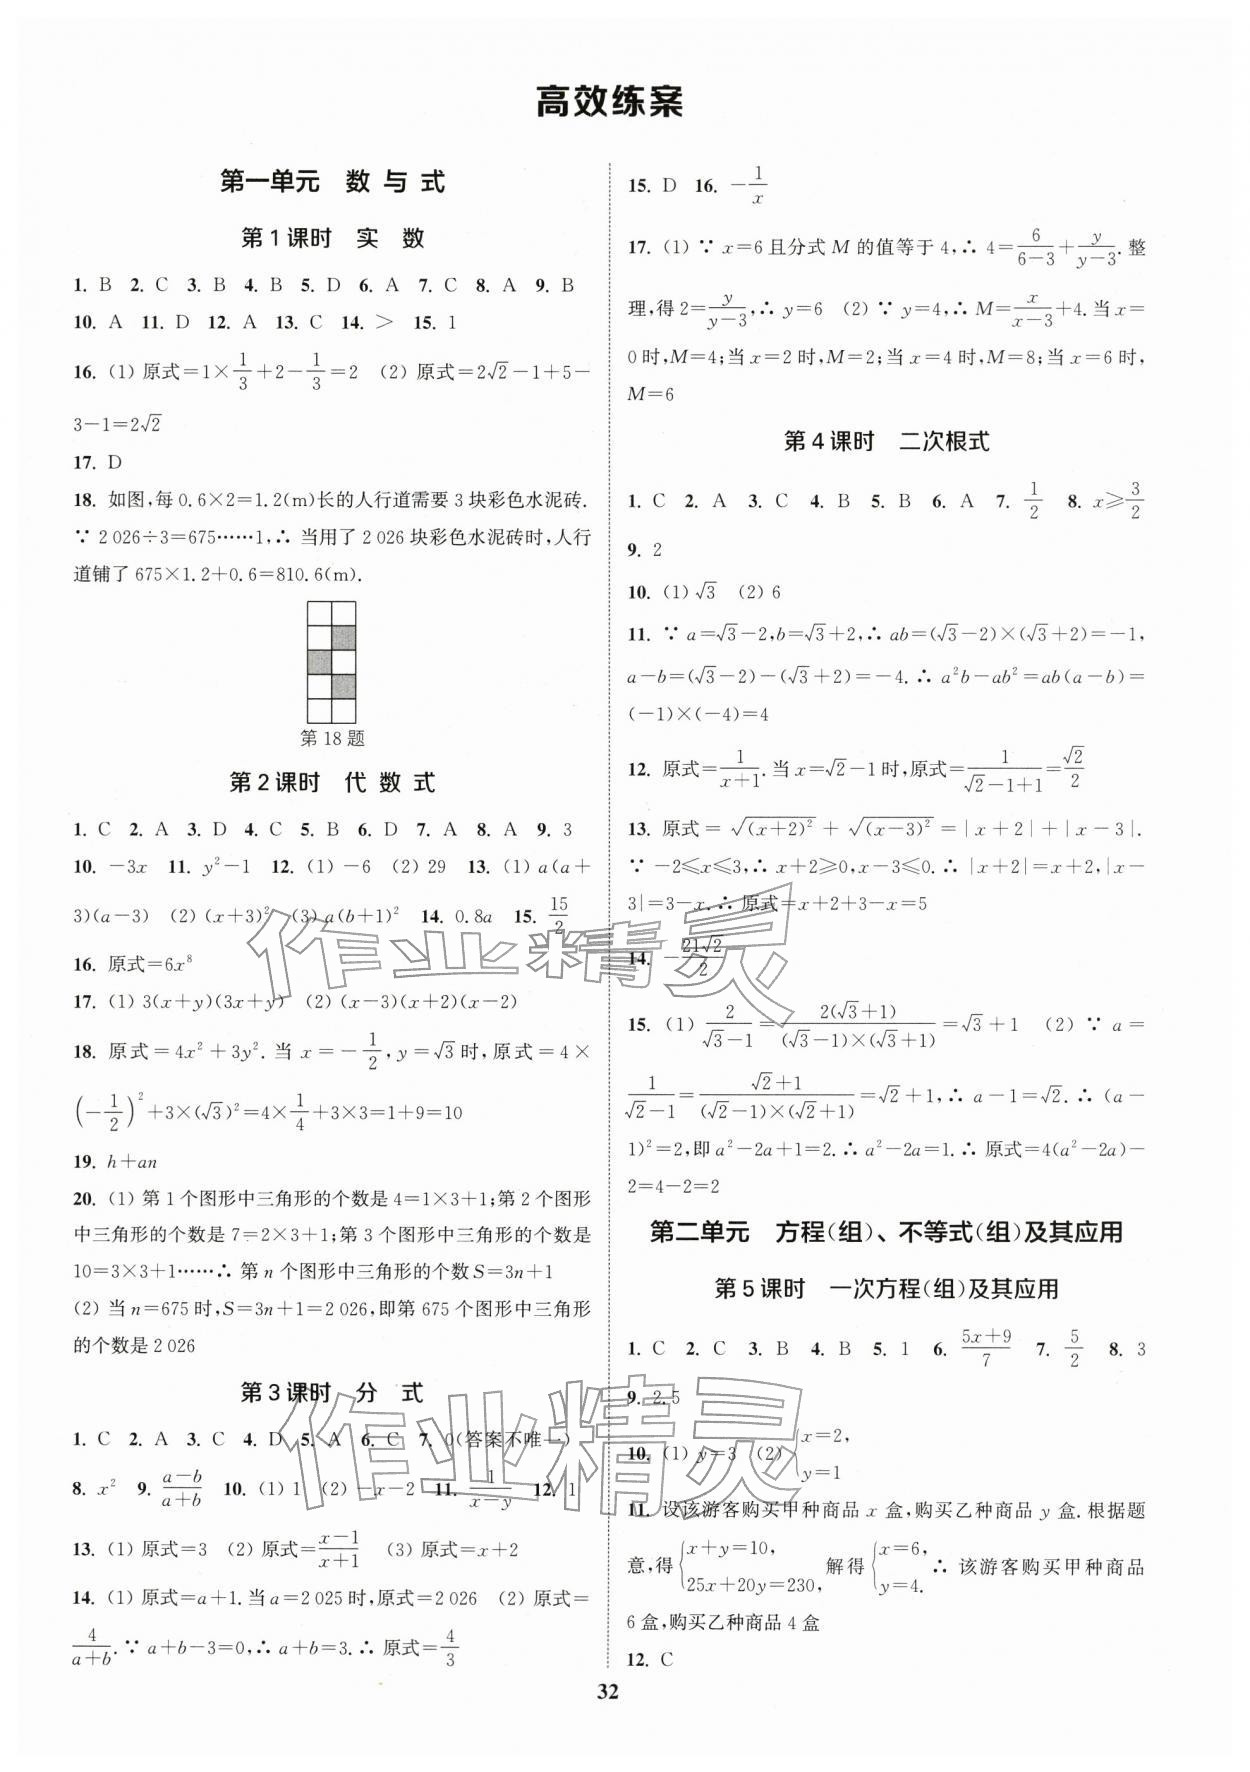 高效练案
第一单元 数与式
第1课时 实 数
1. B 2. C 3. B 4. B 5. D 6. A 7. C 8. A 9. B
10. A 11. D 12. A 13. C 14. > 15. 1
16. (1) 原式=1×1/3+2-1/3=2 (2) 原式=2√2-1+5-
3-1=2√2
17. D
18. 如图,每0.6×2=1.2(m)长的人行道需要3块彩色水泥砖.
∵ 2 026÷3=675……1,∴ 当用了2 026块彩色水泥砖时,人行
道铺了675×1.2+0.6=810.6(m).
第18题
第2课时 代数式
1. C 2. A 3. D 4. C 5. B 6. D 7. A 8. A 9. 3
10. -3x 11. y²-1 12. (1) -6 (2) 29 13. (1) a(a+
3)(a-3) (2) (x+3)² (3) a(b+1)² 14. 0.8a 15. 15/2
16. 原式=6x⁸
17. (1) 3(x+y)(3x+y) (2) (x-3)(x+2)(x-2)
18. 原式=4x²+3y². 当x=-1/2,y=√3时,原式=4×
(-1/2)²+3×(√3)²=4×1/4+3×3=1+9=10
19. h+an
20. (1) 第1个图形中三角形的个数是4=1×3+1;第2个图形
中三角形的个数是7=2×3+1;第3个图形中三角形的个数是
10=3×3+1……∴ 第n个图形中三角形的个数S=3n+1
(2) 当n=675时,S=3n+1=2 026,即第675个图形中三角形
的个数是2 026
第3课时 分 式
1. C 2. A 3. C 4. D 5. A 6. C 7. 0(答案不唯一)
8. x² 9. (a-b)/(a+b) 10. (1) 1 (2) -x-2 11. 1/(x-y) 12. 1
13. (1) 原式=3 (2) 原式=(x-1)/(x+1) (3) 原式=x+2
14. (1) 原式=a+1.当a=2 025时,原式=2 026 (2) 原式=
4/(a+b).∵ a+b-3=0,∴ a+b=3.∴ 原式=4/3
15. D 16. -1/x
17. (1) ∵ x=6且分式M的值等于4,∴ 4=6/(6-3)+y/(y-3).整
理,得2=y/(y-3),∴ y=6 (2) ∵ y=4,∴ M=x/(x-3)+4.当x=
0时,M=4;当x=2时,M=2;当x=4时,M=8;当x=6时,
M=6
第4课时 二次根式
1. C 2. A 3. C 4. B 5. B 6. A 7. 1/2 8. x≥3/2
9. 2
10. (1) √3 (2) 6
11. ∵ a=√3-2,b=√3+2,∴ ab=(√3-2)×(√3+2)=-1,
a-b=(√3-2)-(√3+2)=-4.∴ a²b-ab²=ab(a-b)=
(-1)×(-4)=4
12. 原式=1/(x+1).当x=√2-1时,原式=1/(√2-1+1)=√2/2
13. 原式=√(x+2)²+√(x-3)²=|x+2|+|x-3|.
∵ -2≤x≤3,∴ x+2≥0,x-3≤0.∴ |x+2|=x+2,|x-
3|=3-x.∴ 原式=x+2+3-x=5
14. -21√2/2
15. (1) 2/(√3-1)=2(√3+1)/((√3-1)×(√3+1))=√3+1 (2) ∵ a=
1/(√2-1)=(√2+1)/((√2-1)×(√2+1))=√2+1,∴ a-1=√2.∴ (a-
1)²=2,即a²-2a+1=2.∴ a²-2a=1.∴ 原式=4(a²-2a)-
2=4-2=2
第二单元 方程(组)、不等式(组)及其应用
第5课时 一次方程(组)及其应用
1. C 2. C 3. B 4. B 5. 1 6. (5x+9)/7 7. 5/2 8. 3
9. 2.5
10. (1) y=3 (2) {x=2, y=1
11. 设该游客购买甲种商品x盒,购买乙种商品y盒.根据题
意,得{x+y=10, 25x+20y=230, 解得{x=6, y=4. ∴ 该游客购买甲种商品
6盒,购买乙种商品4盒
12. C
32
作业精灵
作业精灵